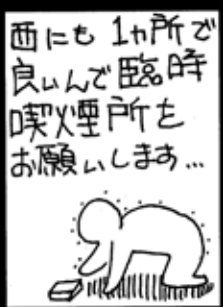 西にも 1ヵ所で
良いんで臨時
喫煙所を
お願いします…